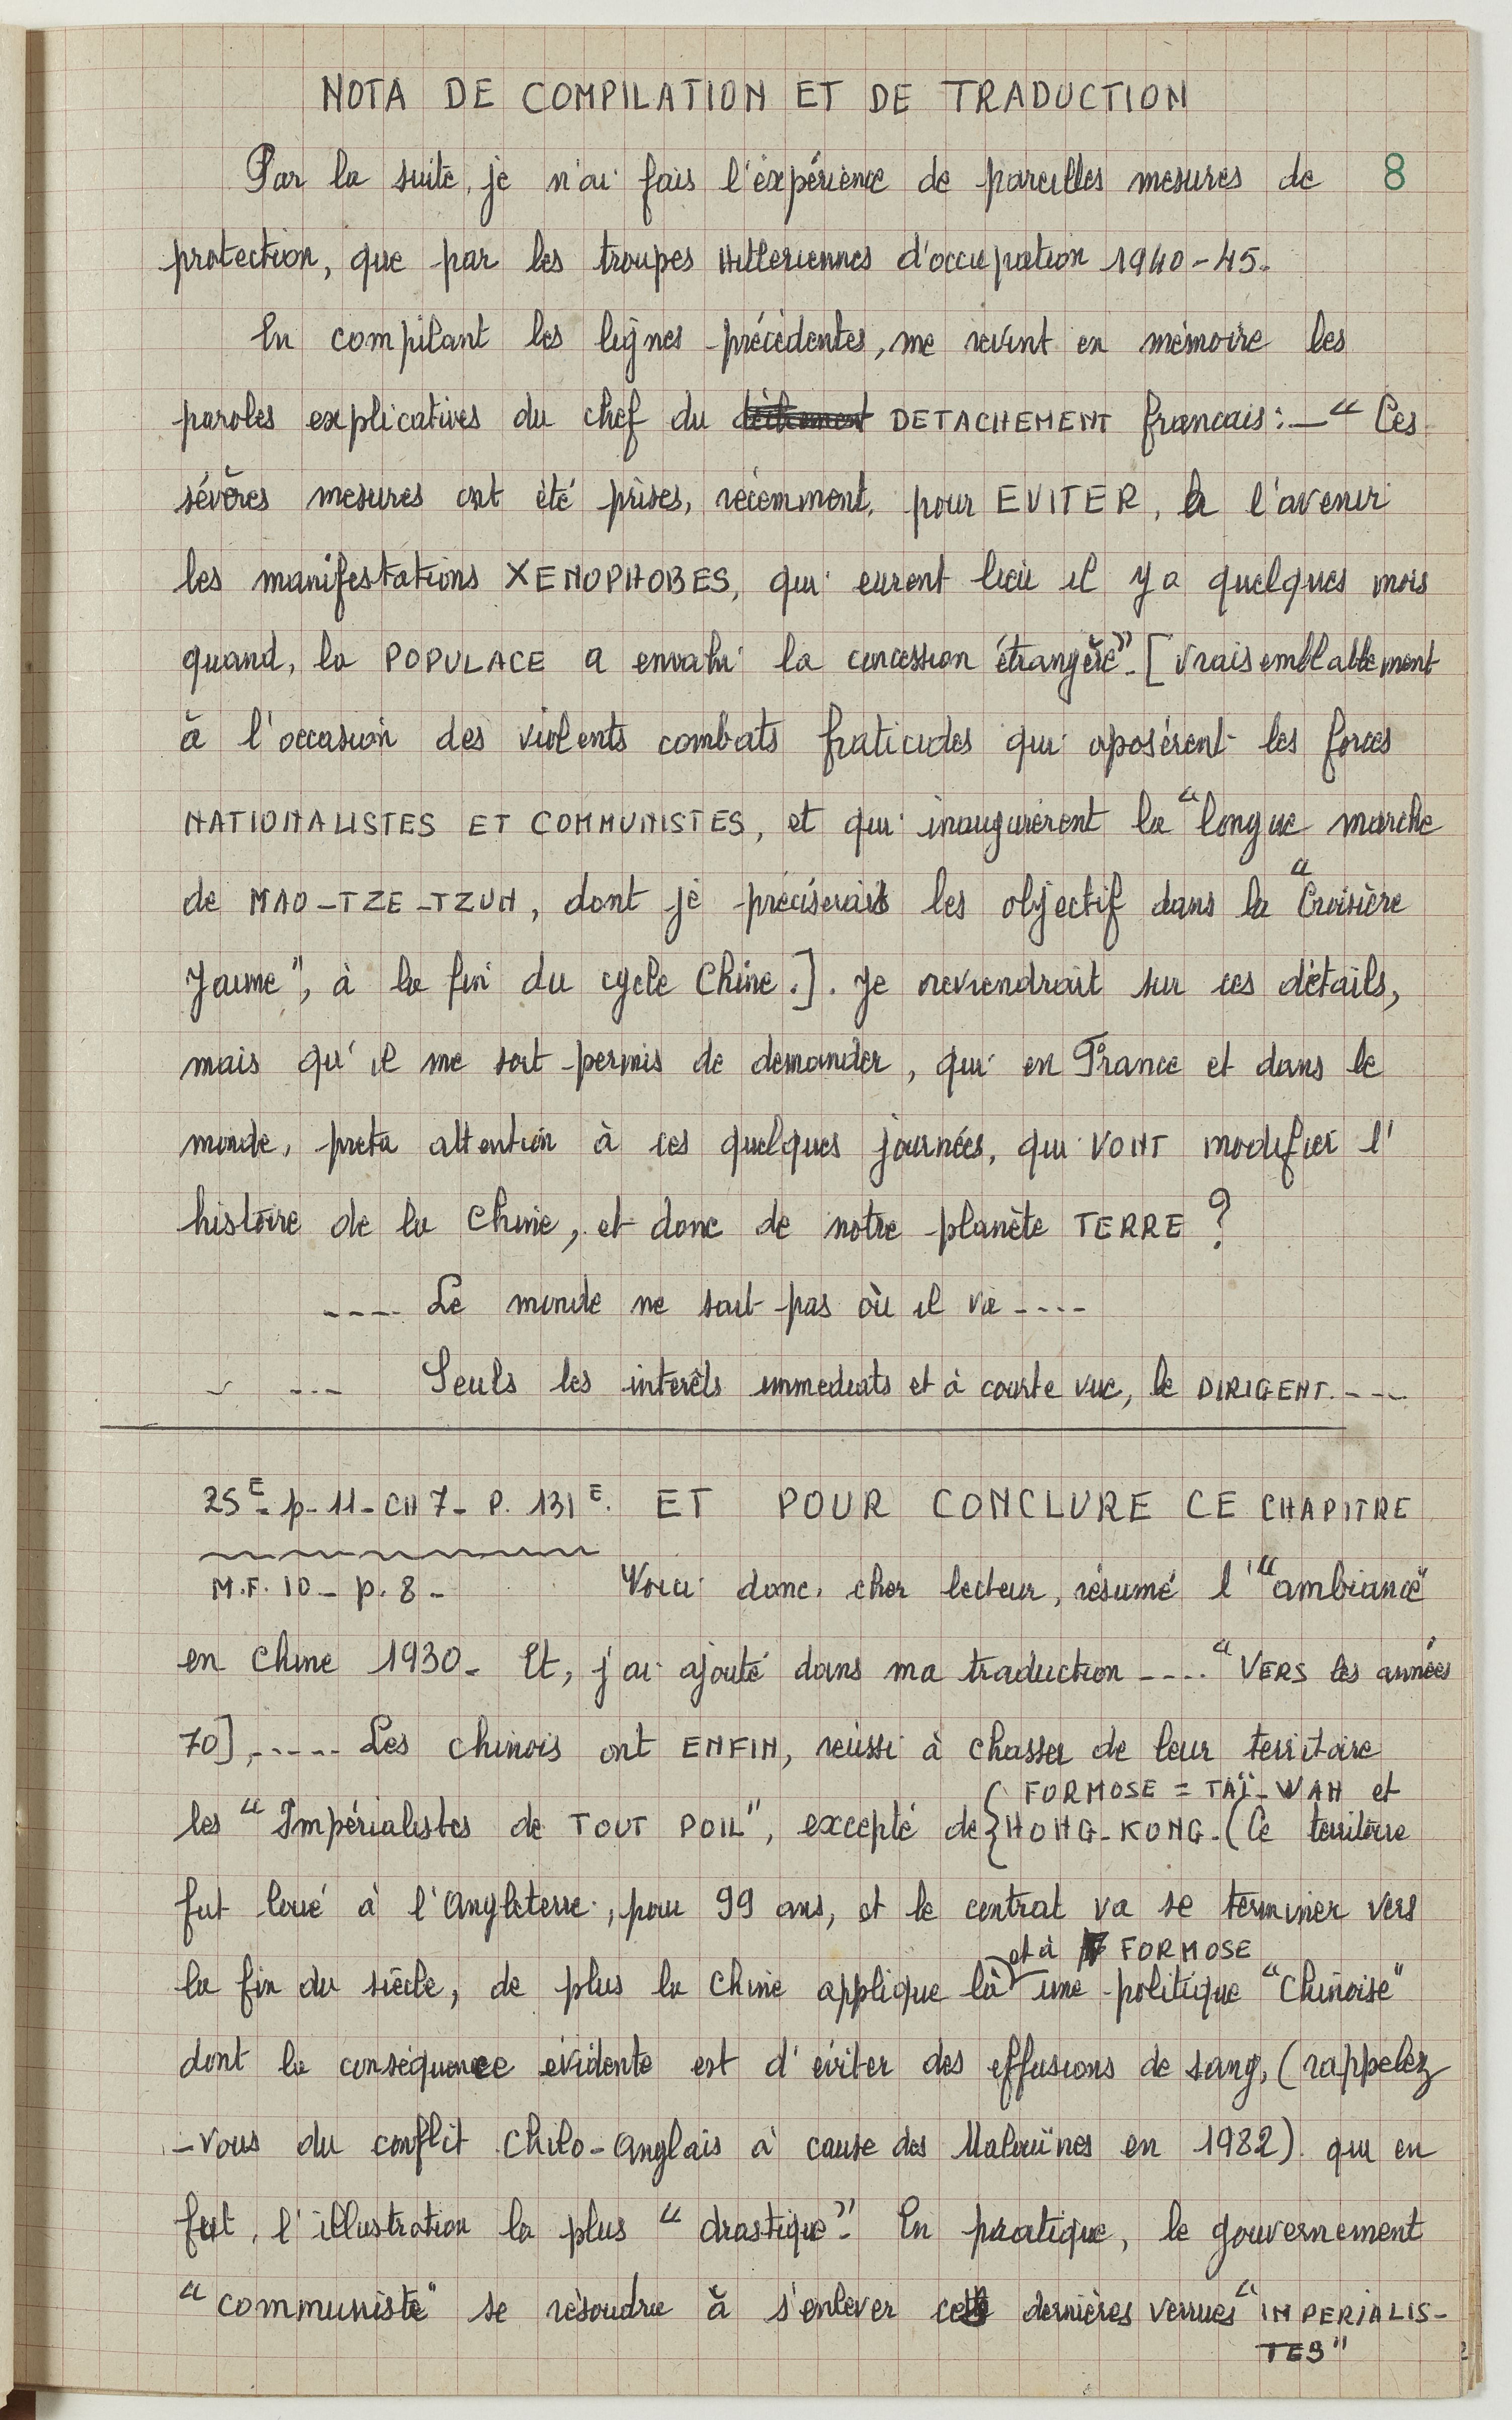 NOTA DE COMPILATION ET DE TRADUCTION
Par la suite, je n'ai fais l'éxpérience de pareilles mesures de 8
protection, que par les troupes Hitleriennes d'occupation 1940-45.
En compilant les lignes précédentes, me revint en mémoire les
paroles explicatives du chef du DETACHEMENT francais:_" Ces
sévères mesures ont été prises, récemment, pour EVITER, à l'avenir
les manifestations XENOPHOBES, qui eurent lieu il y a quelques mois
quand, la POPULACE a envahi la concession étrangère". [Vraisemblablement
à l'occasion des violents combats fraticides qui oposérent les forces
NATIONALISTES ET COMMUNISTES, et qui inaugurérent la "longue marche
de MAO-TZE-TZUN, dont je préciserais les objectif dans la "Croisière
Jaune", à la fin du cycle Chine.]. Je reviendrait sur ces détails,
mais qu'il me soit permis de demander, qui en France et dans le
monde, preta attention à ces quelques journées, qui VONT modifier l'
histoire de la Chine, et donc de notre planète TERRE ?
---- Le monde ne sait pas où il va ----
--- Seuls les interêts immediats et à courte vue, le DIRIGENT.---
25E- p-11- CH 7- P. 131E. ET POUR CONCLURE CE CHAPITRE
M.F. 10- p. 8- Voici donc, cher lecteur, résumé l'"ambiance"
en Chine 1930. Et, j'ai ajouté dans ma traduction ----"VERS les années
70],----- Les chinois ont ENFIN, réussi à chasser de leur territoire
FORMOSE = TAÏ-WAN et
les "Impérialistes de TOUT POIL", excepté de { HONG-KONG-(Ce territoire
fut loué à l'Angleterre, pour 99 ans, et le contrat va se terminer vers
et à FORMOSE
la fin du siécle, de plus la Chine applique là une politique "Chinoise"
dont la conséquence évidente est d'éviter des effusions de sang, (rappelez
-vous du conflit Chilo-Anglais à cause des Malouïnes en 1982) qui en
fut, l'illustration la plus "drastique". En pratique, le gouvernement
"communiste" se résoudre à s'enlever ces dernières verrues "IMPERIALIS-
TES"